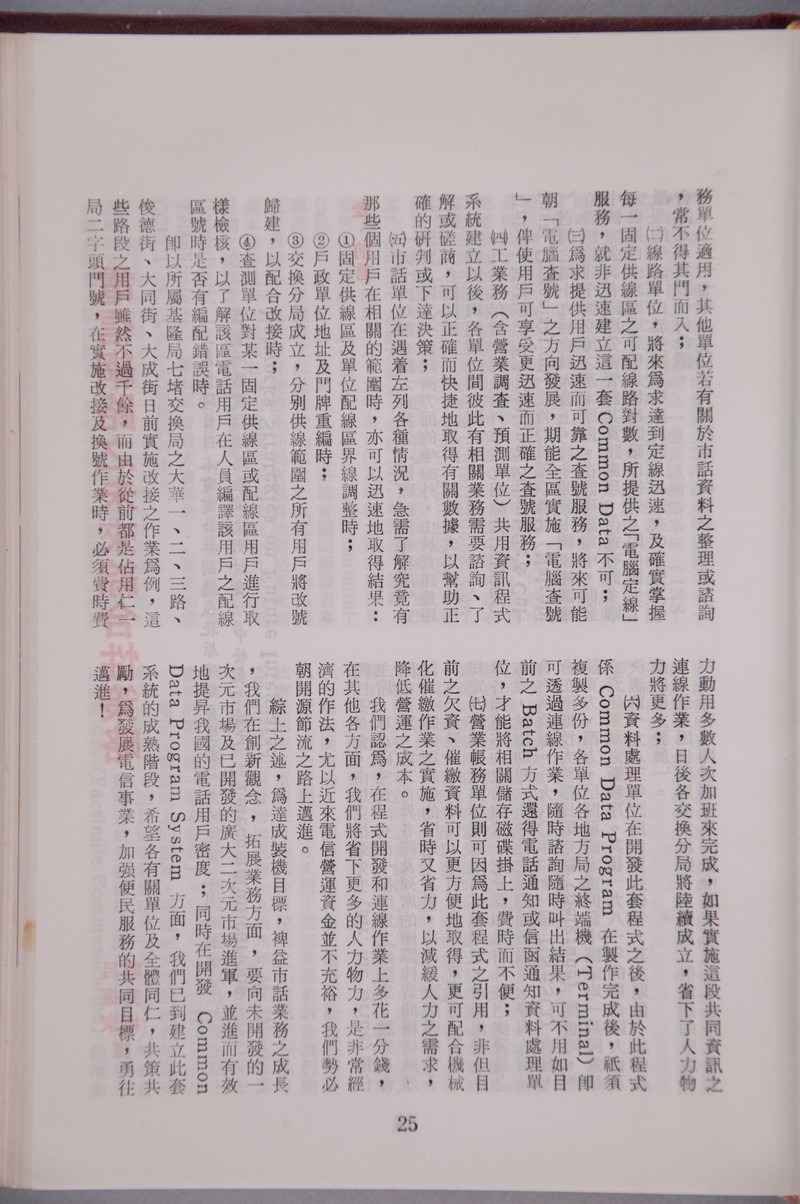 務單位適用，其他單位若有關於市話資料之整理或諮詢
，常不得其門而入；
㈡線路單位，將來爲求達到定線迅速，及確實掌握
每一固定供線區之可配線路對數，所提供之「電腦定線」
服務，就非迅速建立這一套Common Data不可；
㈢爲求提供用戶迅速而可靠之查號服務，將來可能
朝「電腦查號」之方向發展，期能全區實施「電腦查號
」，俾使用戶可享受更迅速而正確之查號服務；
㈣工業務（含營業調查、預測單位）共用資訊程式
系統建立以後，各單位間彼此有相關業務需要諮詢、了
解或磋商，可以正確而快捷地取得有關數據，以幫助正
確的研判或下達決策；
㈤市話單位在遇着左列各種情況，急需了解究竟有
那些個用戶在相關的範圍時，亦可以迅速地取得結果：
①固定供線區及單位配線區界線調整時；
②戶政單位地址及門牌重編時；
③交換分局成立，分別供線範圍之所有用戶將改號
歸建，以配合改接時；
④查測單位對某一固定供線區或配線區用戶進行取
樣檢核，以了解該區電話用戶在人員編譯該用戶之配線
區號時是否有編配錯誤時。
卽以所屬基隆局七堵交換局之大華一、二、三路、
俊德街、大同街、大成街日前實施改接之作業爲例，這
些路段之用戶雖然不過千餘，而由於從前都是佔用仁一
局二字頭門號，在實施改接及換號作業時，必須費時費
力動用多數人次加班來完成，如果實施這段共同資訊之
連線作業，日後各交換分局將陸續成立，省下了人力物
力將更多；
㈥資料處理單位在開發此套程式之後，由於此程式
係 Common Data Program 在製作完成後，祇須
複製多份，各單位各地方局之終端機（Terminal）卽
可透過連線作業，隨時諮詢隨時叫出結果，可不用如目
前之 Batch 方式還得電話通知或信函通知資料處理單
位，才能將相關儲存磁碟掛上，費時而不便；
㈦營業帳務單位則可因爲此套程式之引用，非但目
前之欠資、催繳資料可以更方便地取得，更可配合機械
化催繳作業之實施，省時又省力，以減緩人力之需求，
降低營運之成本。
我們認爲，在程式開發和連線作業上多花一分錢，
在其他各方面，我們將省下更多的人力物力，是非常經
濟的作法，尤以近來電信營運資金並不充裕，我們勢必
朝開源節流之路上邁進。
綜上之述，爲達成裝機目標，裨益市話業務之成長
，我們在創新觀念，拓展業務方面，要向未開發的一
次元市場及已開發的廣大二次元市場進軍，並進而有效
地提昇我國的電話用戶密度；同時在開發 Common
Data Program System 方面，我們已到建立此套
系統的成熟階段，希望各有關單位及全體同仁，共策共
勵，爲發展電信事業，加强便民服務的共同目標，勇往
邁進！
25